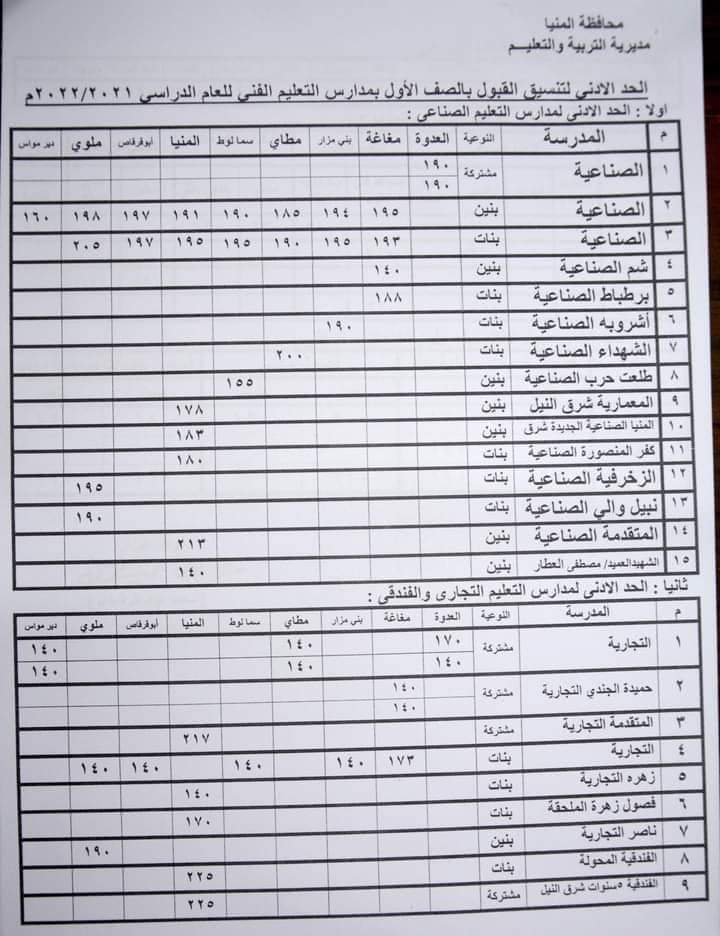 محافظة المنيا
مديرية التربية والتعليـم
الحد الادنى لتنسيق القبول بالصف الأول بمدارس التعليم الفني للعام الدراسي ٢٠٢٢/٢٠٢١م
اولا : الحد الادنى لمدارس التعليم الصناعى :
م المدرسة النوعية العدوة مغاغة بني مزار مطاي سما لوط المنيا أبوقرقاص ملوي دير مواس
١ الصناعية مشتركة ١٩٠
١٩٠
٢ الصناعية بنين ١٩٥ ١٩٤ ١٨٥ ١٩٠ ١٩١ ١٩٧ ١٩٨ ١٦٠
٣ الصناعية بنات ١٩٣ ١٩٥ ١٩٠ ١٩٥ ١٩٥ ١٩٧ ٢٠٥
٤ شم الصناعية بنين ١٤٠
٥ برطباط الصناعية بنات ١٨٨
٦ أشروبه الصناعية بنات ١٩٠
٧ الشهداء الصناعية بنات ٢٠٠
٨ طلعت حرب الصناعية بنين ١٥٥
٩ المعمارية شرق النيل بنين ١٧٨
١٠ المنيا الصناعية الجديدة شرق بنين ١٨٣
١١ كفر المنصورة الصناعية بنات ١٨٠
١٢ الزخرفية الصناعية بنات ١٩٥
١٣ نبيل والي الصناعية بنات ١٩٠
١٤ المتقدمة الصناعية بنين ٢١٣
١٥ الشهيدالعميد/ مصطفى العطار بنين ١٤٠
ثانيا : الحد الادنى لمدارس التعليم التجارى والفندقى :
م المدرسة النوعية العدوة مغاغة بني مزار مطاي سما لوط المنيا أبوقرقاص ملوي دير مواس
١ التجارية مشتركة ١٧٠ ١٤٠ ١٤٠
١٤٠ ١٤٠ ١٤٠
٢ حميدة الجندي التجارية مشتركة ١٤٠
١٤٠
٣ المتقدمة التجارية مشتركة ٢١٧
٤ التجارية بنات ١٧٣ ١٤٠ ١٤٠ ١٤٠ ١٤٠
٥ زهره التجارية بنات ١٤٠
٦ فصول زهرة الملحقة بنات ١٧٠
٧ ناصر التجارية بنين ١٩٠
٨ الفندقية المحولة بنات ٢٢٥
٩ الفندقية ٥سنوات شرق النيل مشتركة ٢٢٥